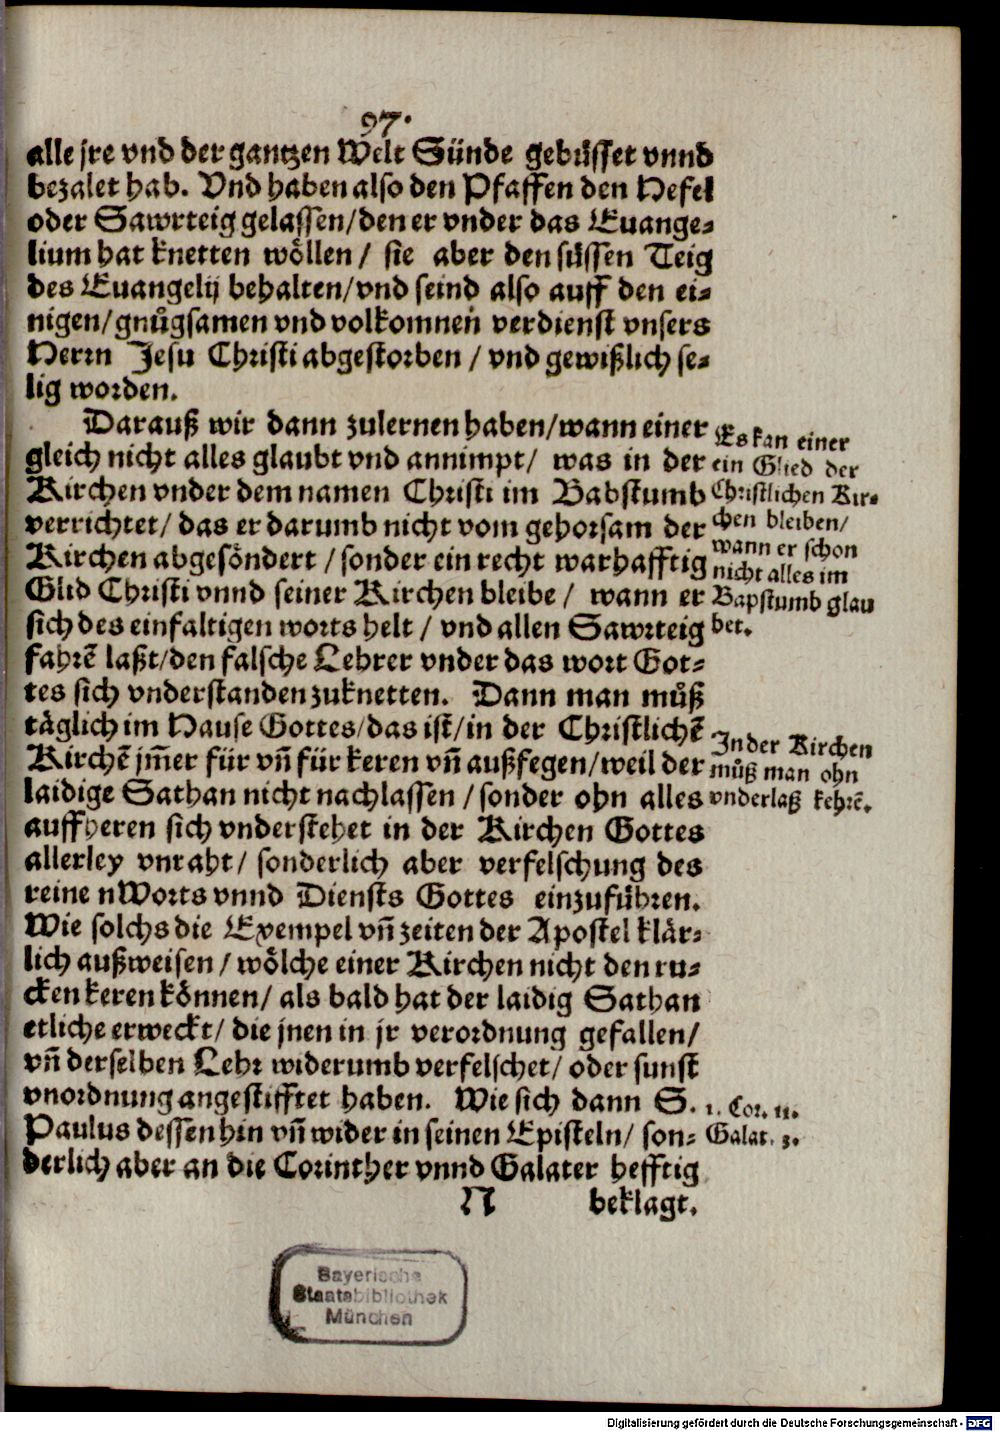 97.
alle jre vnd der gantzen Welt Sünde gebüsset vnnd
bezalet hab. Vnd haben also den Pfaffen den Hefel
oder Sawrteig gelassen/den er vnder das Euange-
lium hat knetten wöllen/ sie aber den süssen Teig
des Euangelij behalten/vnd seind also auff den ei-
nigen/gnůgsamen vnd volkomnen verdienst vnsers
Herrn Jesu Christi abgestorben/ vnd gewißlich se-
lig worden.
Darauß wir dann zulernen haben/wann einer
gleich nicht alles glaubt vnd annimpt/ was in der
Kirchen vnder dem namen Christi im Babstumb
verrichtet/ das er darumb nicht vom gehorsam der
Kirchen abgesöndert/sonder ein recht warhafftig
Glid Christi vnnd seiner Kirchen bleibe/ wann er
sich des einfaltigen worts helt/ vnd allen Sawrteig
fahrē laßt/den falsche Lehrer vnder das wort Got-
tes sich vnderstanden zuknetten. Dann man můß
täglich im Hause Gottes/das ist/in der Christlichē
Kirchē jm̄er für vn̄ für keren vn̄ außfegen/weil der
laidige Sathan nicht nachlassen/sonder ohn alles
auffheren sich vnderstehet in der Kirchen Gottes
allerley vnraht/ sonderlich aber verfelschung des
reine nWorts vnnd Diensts Gottes einzuführen.
Wie solchs die Exempel vn̄ zeiten der Apostel klär-
lich außweisen/ wölche einer Kirchen nicht den ru-
cken keren können/ als bald hat der laidig Sathan
etliche erweckt/ die jnen in jr verordnung gefallen/
vn̄ derselben Lehr widerumb verfelschet/ oder sunst
vnordnung angestifftet haben. Wie sich dann S.
Paulus dessen hin vn̄ wider in seinen Episteln/ son-
derlich aber an die Corinther vnnd Galater hefftig
N beklagt.
Es kan einer
ein Glied der
Christlichen Kir-
chen bleiben/
wann er schon
nicht alles im
Bapstumb glau
bet.
In der Kirchen
můß man ohn
vnderlaß kehrē.
1. Cor. 11.
Galat. 3.
Bayerische
Staatsbibliothek
München
Digitalisierung gefördert durch die Deutsche Forschungsgemeinschaft - DFG